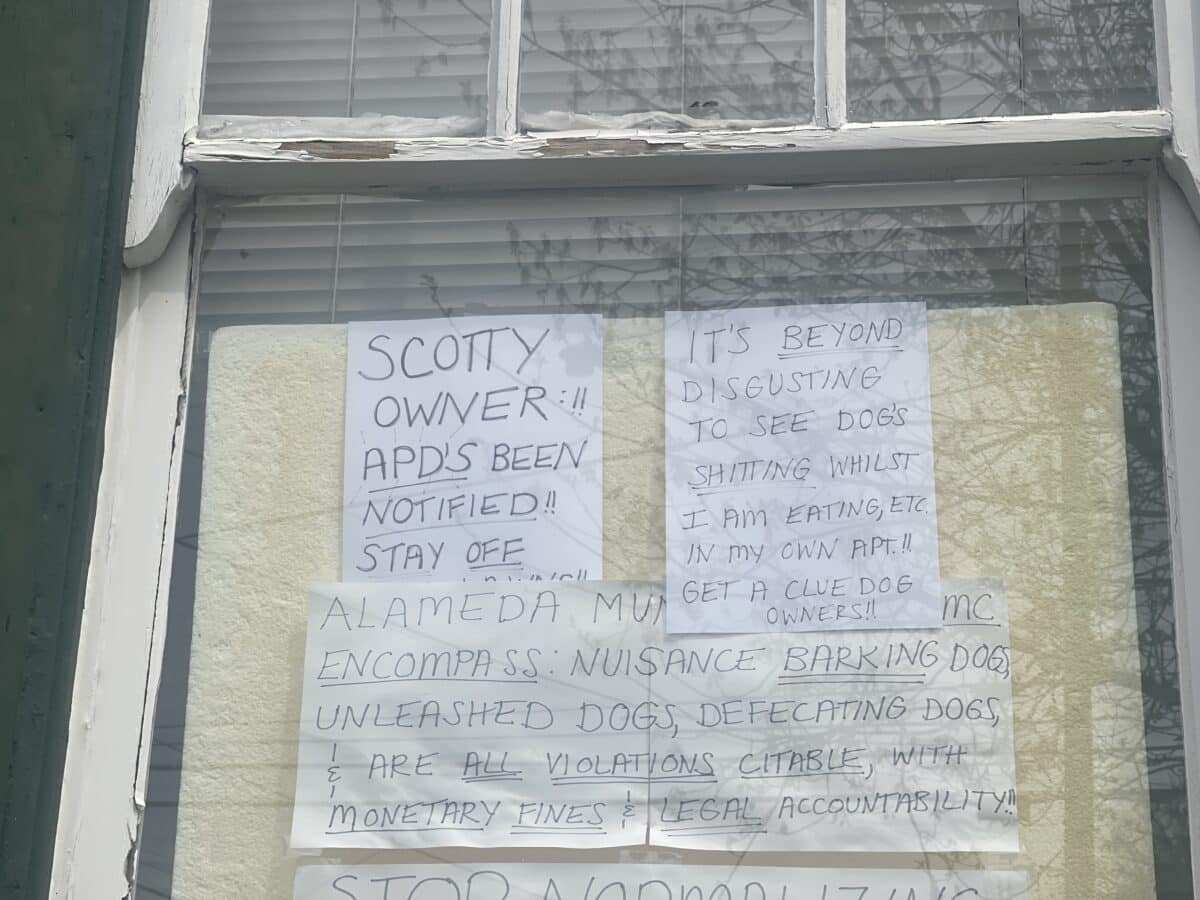 SCOTTY
OWNER:!!
APD'S BEEN
NOTIFIED!!
STAY OFF
IT'S BEYOND
DISGUSTING
TO SEE DOG'S
SHITTING WHILST
I AM EATING, ETC.
IN MY OWN APT.!!
GET A CLUE DOG
OWNERS!!
ALAMEDA MC
ENCOMPASS: NUISANCE BARKING DOGS,
UNLEASHED DOGS, DEFECATING DOGS,
& ARE ALL VIOLATIONS CITABLE, WITH
MONETARY FINES & LEGAL ACCOUNTABILITY!!
STOP NORMALIZING